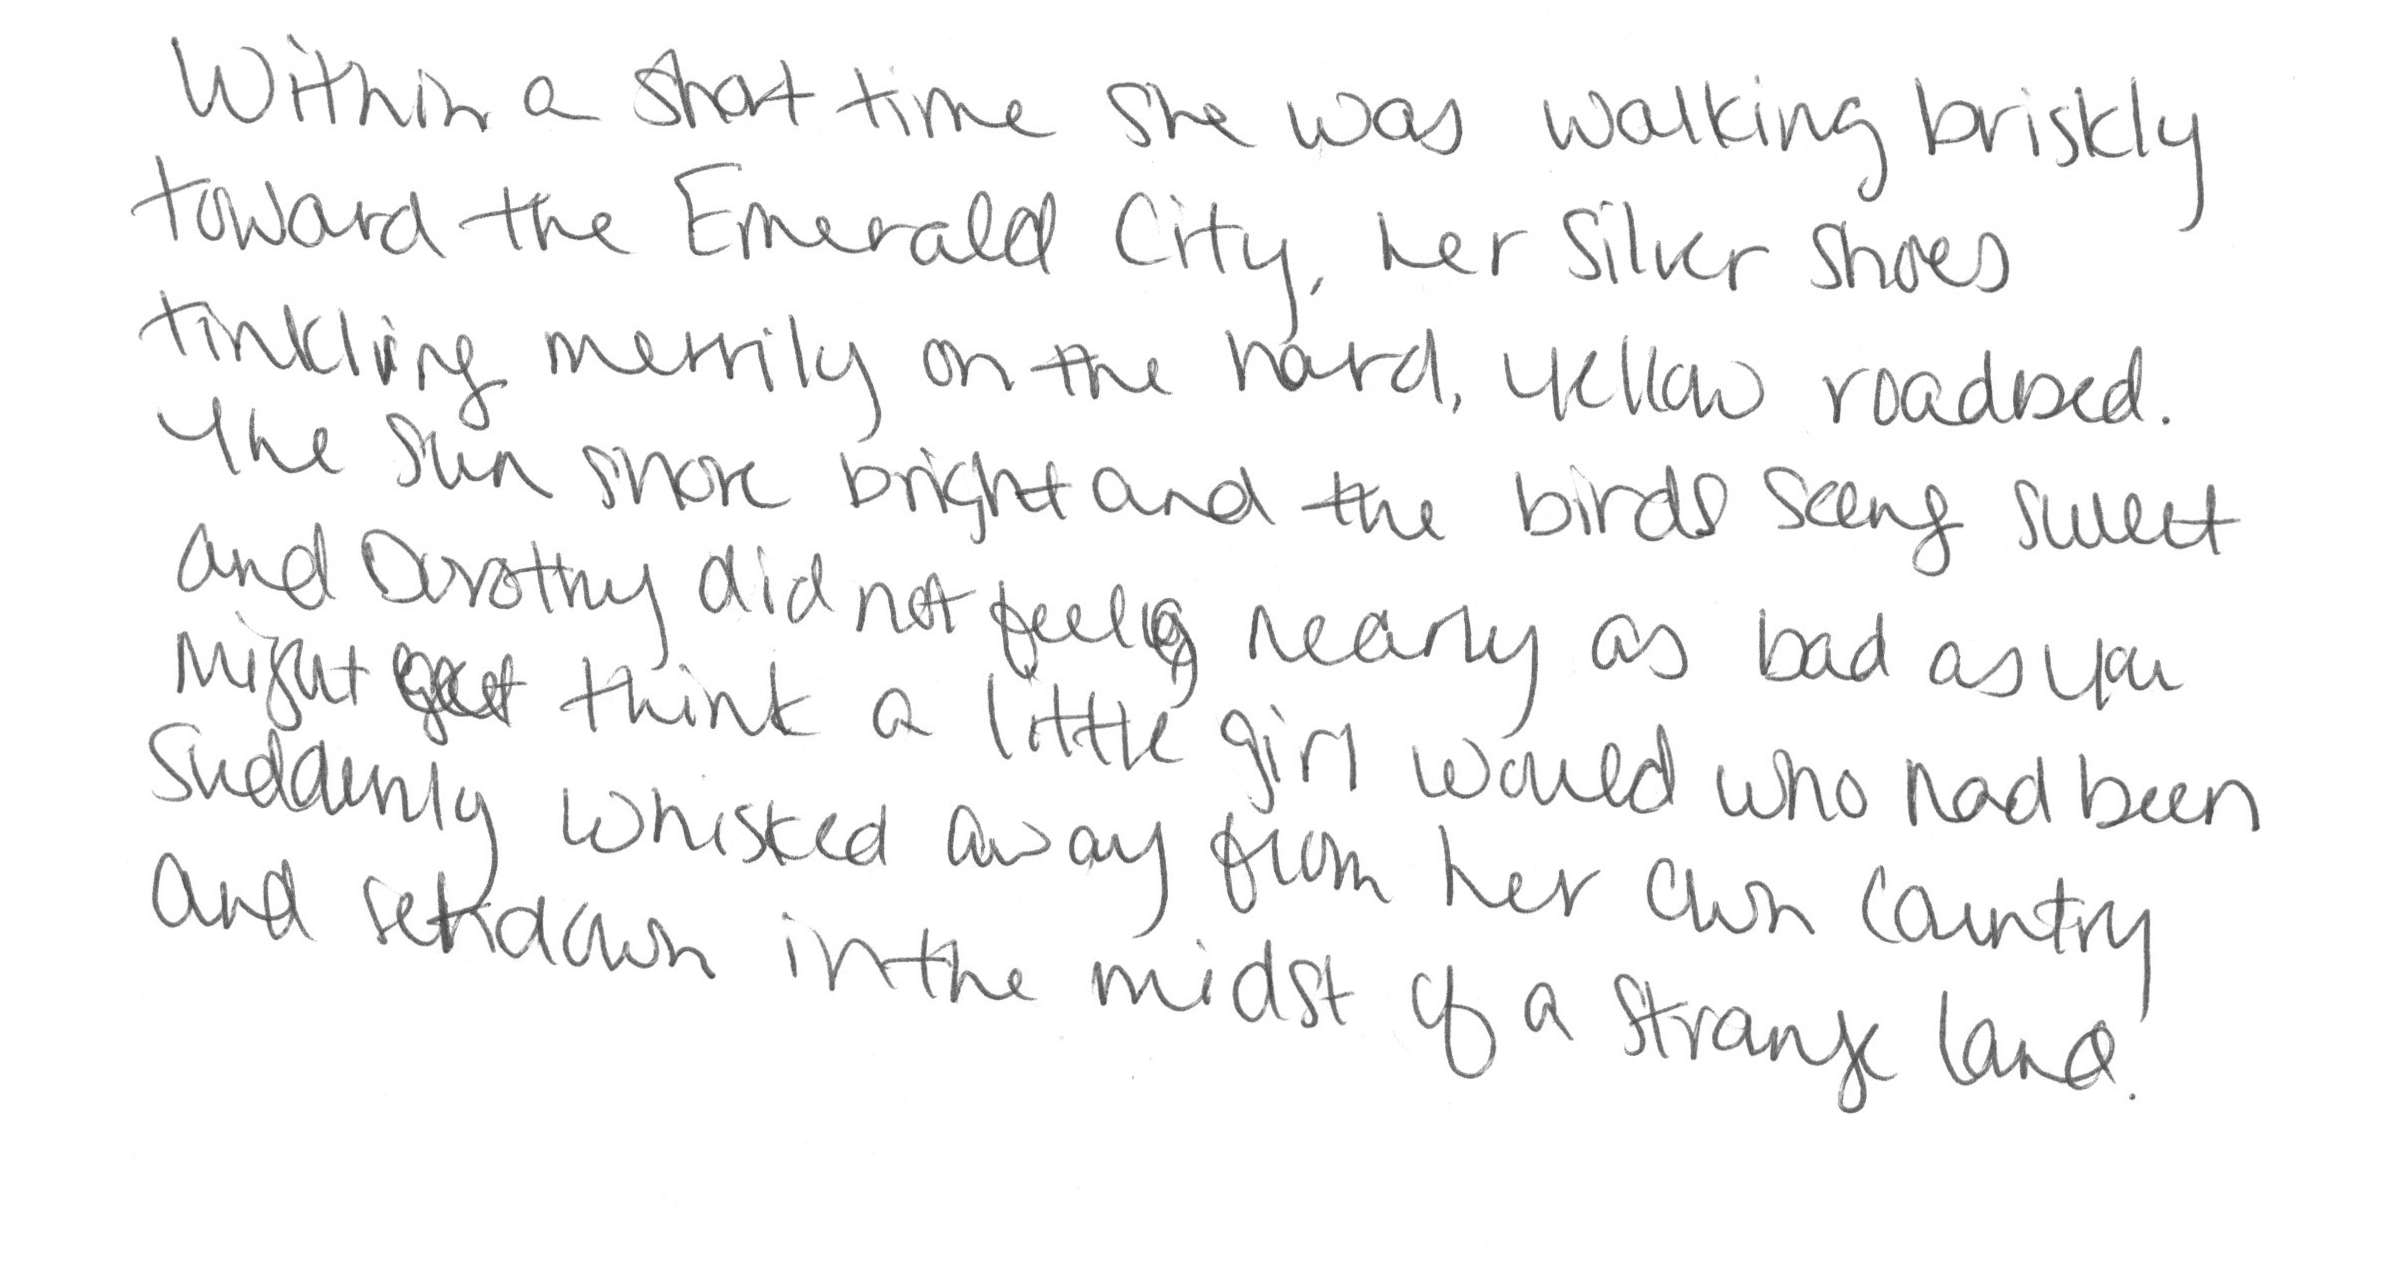 Within a short time she was walking briskly
toward the Emerald City, her Silver Shoes
tinkling merrily on the hard, yellow roadbed.
The sun shone bright and the birds sung sweet
and Dorothy did not feel nearly as bad as you
might think a little girl would who had been
suddenly whisked away from her own country
and set down in the midst of a strange land.